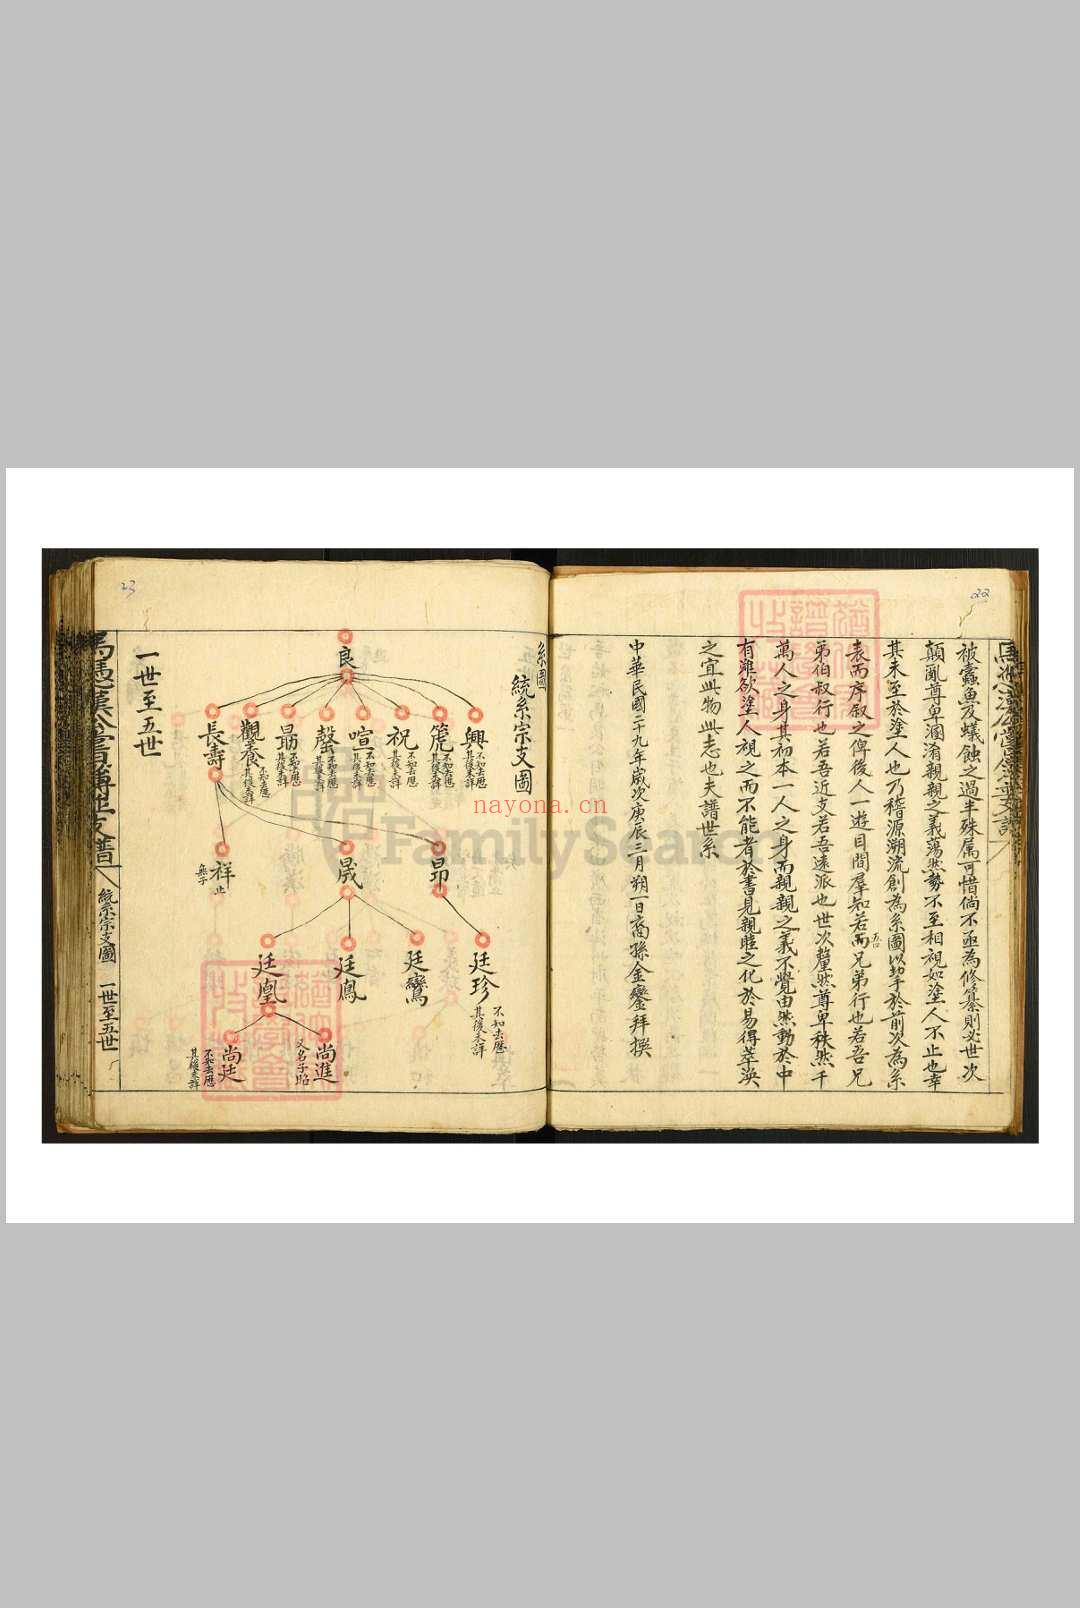 22
被蠹魚及蟻蝕之過半殊屬可惜倘不亟為修纂則必世次
顛亂尊卑溷淆親親之義蕩然勢不至相視如塗人不止也幸
其未至於塗人也乃稽源溯流創為系圖以挈于於前次為系
表而序叙之俾後人一遊目間羣知若而兄弟行也若吾兄
弟伯叔行也若吾近支若吾遠派也世次釐然尊卑秩然千
萬人之身其初本一人之身而親親之義不覺由然動於中
有雖欲塗人視之而不能者於書見親睦之化於易得萃渙
之宜此物此志也夫譜世系
中華民國二十九年歲次庚辰三月朔一日裔孫金鑾拜撰
23
系圖
統系宗支圖
良
興 不知去歷 其後未詳
箎 不知去歷 其後未詳
祝 不知去歷 其後未詳
喧 不知去歷 其後未詳
罄 不知去歷 其後未詳
勗 不知去歷 其後未詳
觀養 不知去歷 其後未詳
長壽
昂
晟
祥 止 無子
廷珍 不知去歷 其後未詳
廷鸞
廷鳳
廷凰
尚進 又名子昭
尚廷 不知去歷 其後未詳
一世至五世
統系宗支圖 一世至五世
FamilySearch
nayona.cn